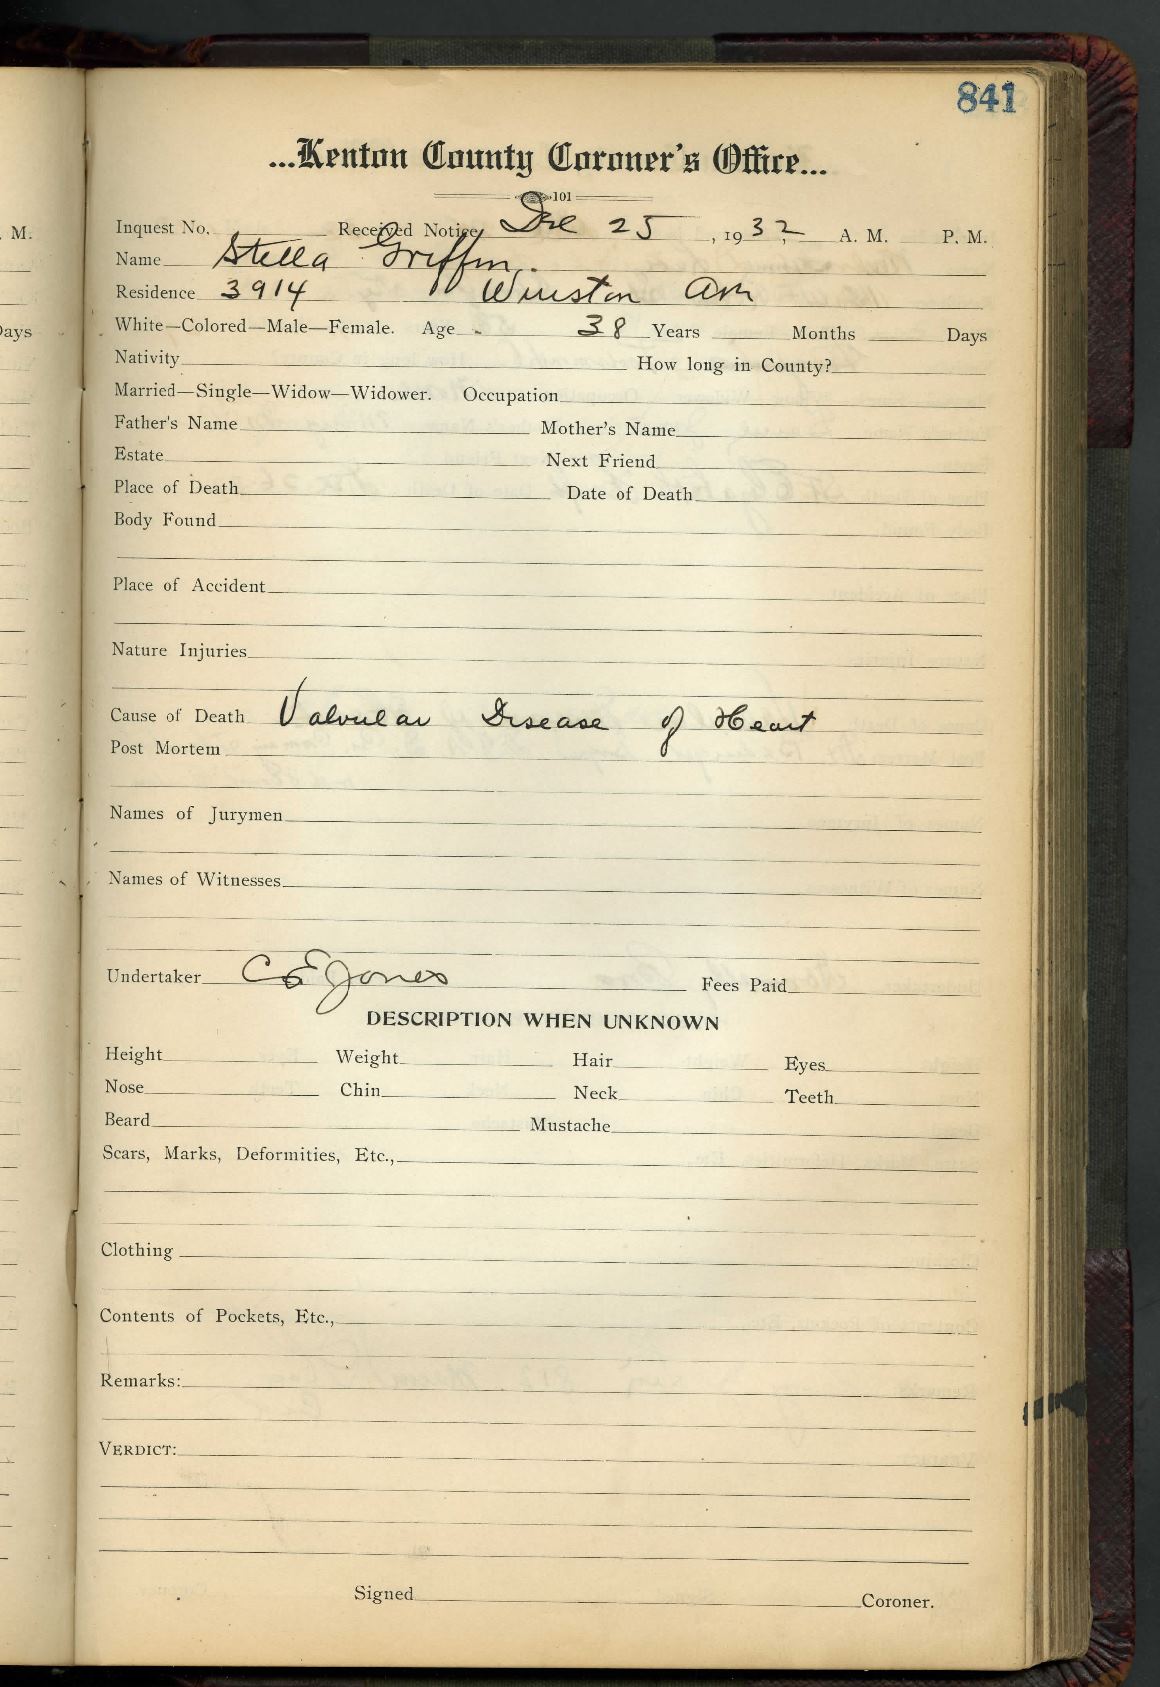 841
...Kenton County Coroner's Office...
101
Inquest No. Received Notice Dec 25, 1932, A. M. P. M.
Name Stella Griffin.
Residence 3914 Winston Ave
White—Colored—Male—Female. Age 38 Years Months Days
Nativity How long in County?
Married—Single—Widow—Widower. Occupation
Father's Name Mother's Name
Estate Next Friend
Place of Death Date of Death
Body Found
Place of Accident
Nature Injuries
Cause of Death Valvular Disease of Heart
Post Mortem
Names of Jurymen
Names of Witnesses
Undertaker C E Jones Fees Paid
DESCRIPTION WHEN UNKNOWN
Height Weight Hair Eyes
Nose Chin Neck Teeth
Beard Mustache
Scars, Marks, Deformities, Etc.,
Clothing
Contents of Pockets, Etc.,
Remarks:
VERDICT:
Signed Coroner.